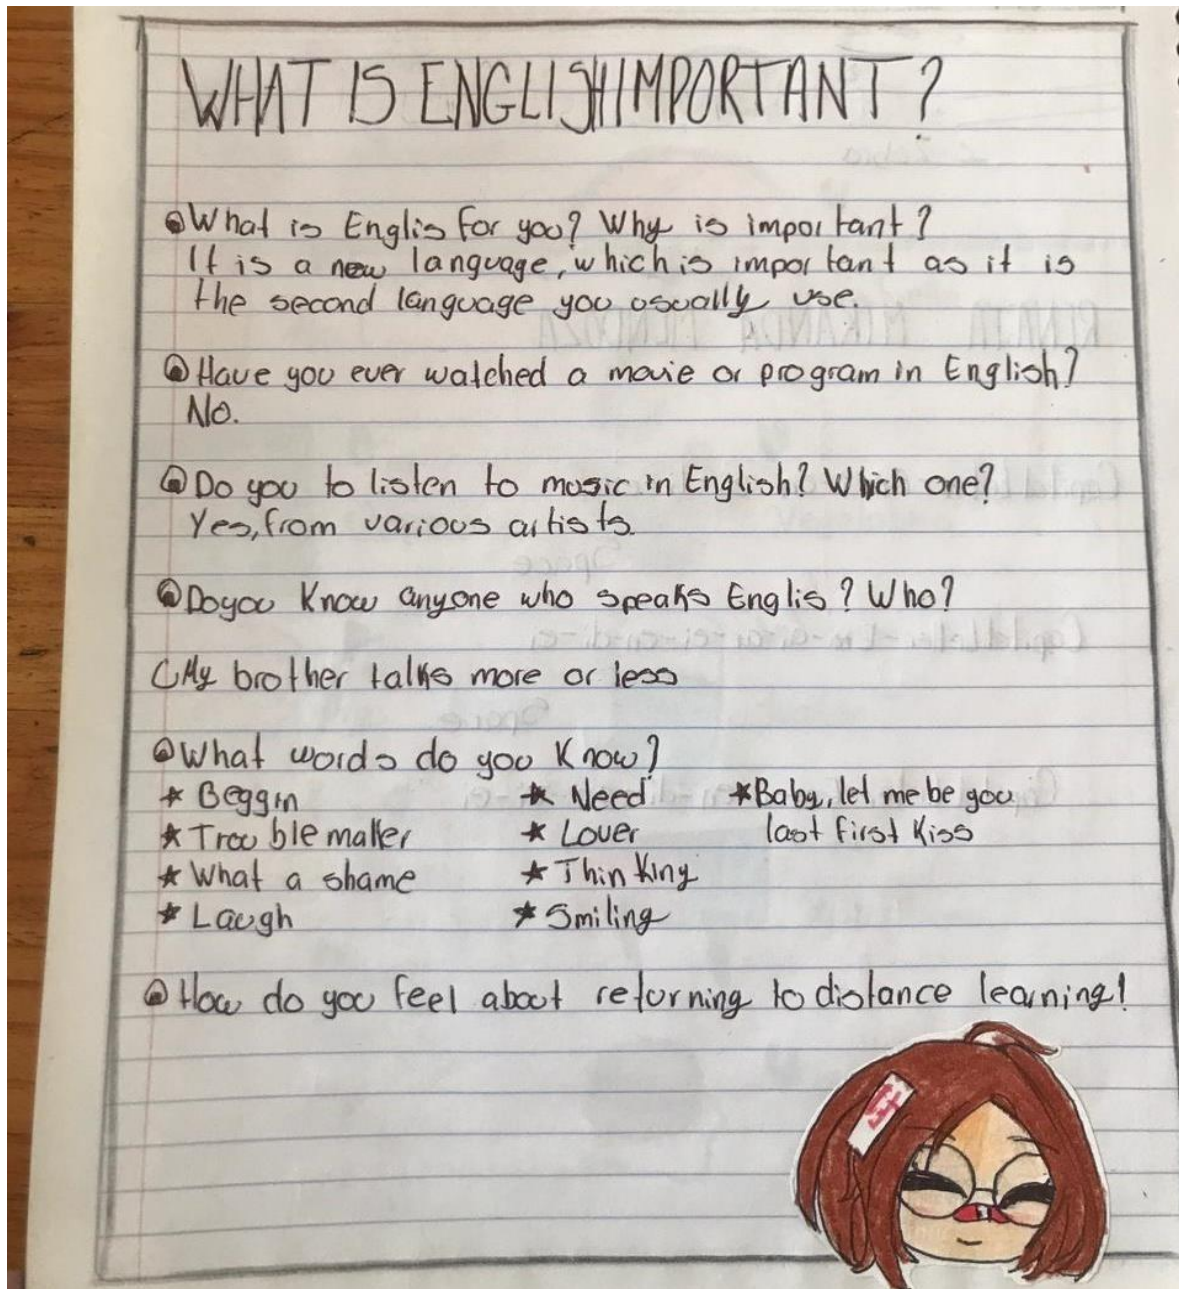 WHAT IS ENGLISH IMPORTANT?
What is Englis for you? Why is important?
It is a new language, which is important as it is
the second language you usually use.
Have you ever watched a movie or program in English?
No.
Do you to listen to music in English? Which one?
Yes, from various artists.
Do you Know anyone who speaks Englis? Who?
My brother talks more or less
What words do you Know?
* Beggin * Need * Baby, let me be you
* Trouble maker * Lover last first Kiss
* What a shame * Thinking
* Laugh * Smiling
How do you feel about returning to distance learning!